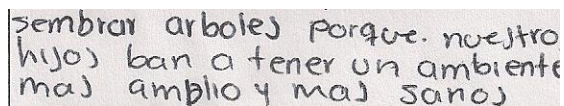 sembrar arboles porque. nuestro
hijos ban a tener un ambiente
mas amplio y mas sanos